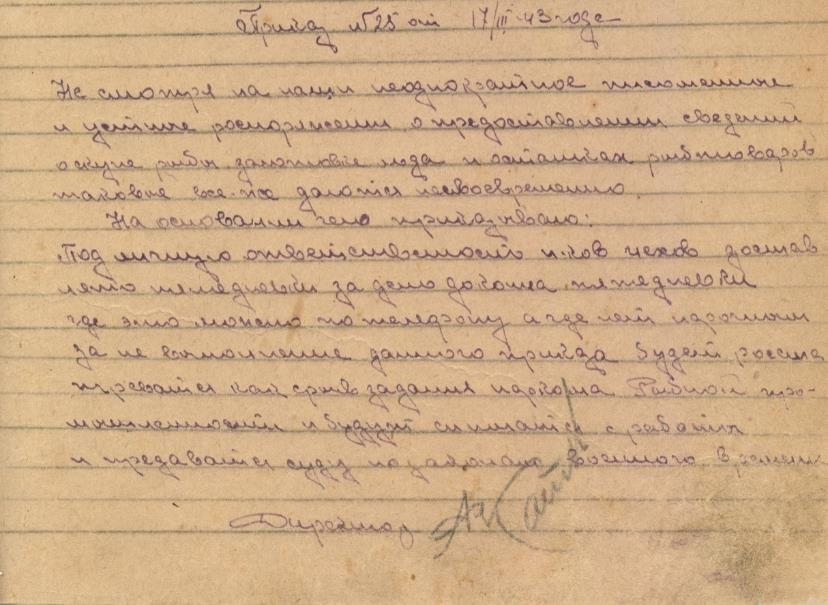 Приказ №25 от 17/III-43 года
Не смотря на наши неоднократное писменные
и устные роспоряжении о предоставлении сведений
о скупе рыбы заготовке льда и остатках рыботоваров
таковые все-же даются несвоевременно.
На основании чего приказываю:
Под личную ответственность н-ков цехов достав
лять пятедневки за день до конца пятедневки
где это можно по телефону а где нет нарочным
за не выполнение данного приказа будет рассма
триватся как срыв задания наркома Рыбной про-
мышленности и будут сниматся с работы
и предаватся суду по законам военного времени
Директор